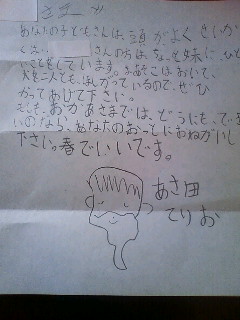 さまへ
あなたの子どもさんは、頭がよく せいか
くも、　　さんの方は、ちょっと妹に ひど
いことをしています。
犬を二人とも、ほしがっているので、ぜひ
かってあげて下さい。
もしも、おかあさまでは、どうにも、できな
いのなら、あなたのおっとにおねがいし
下さい。春でいいです。
あさ田
てりお